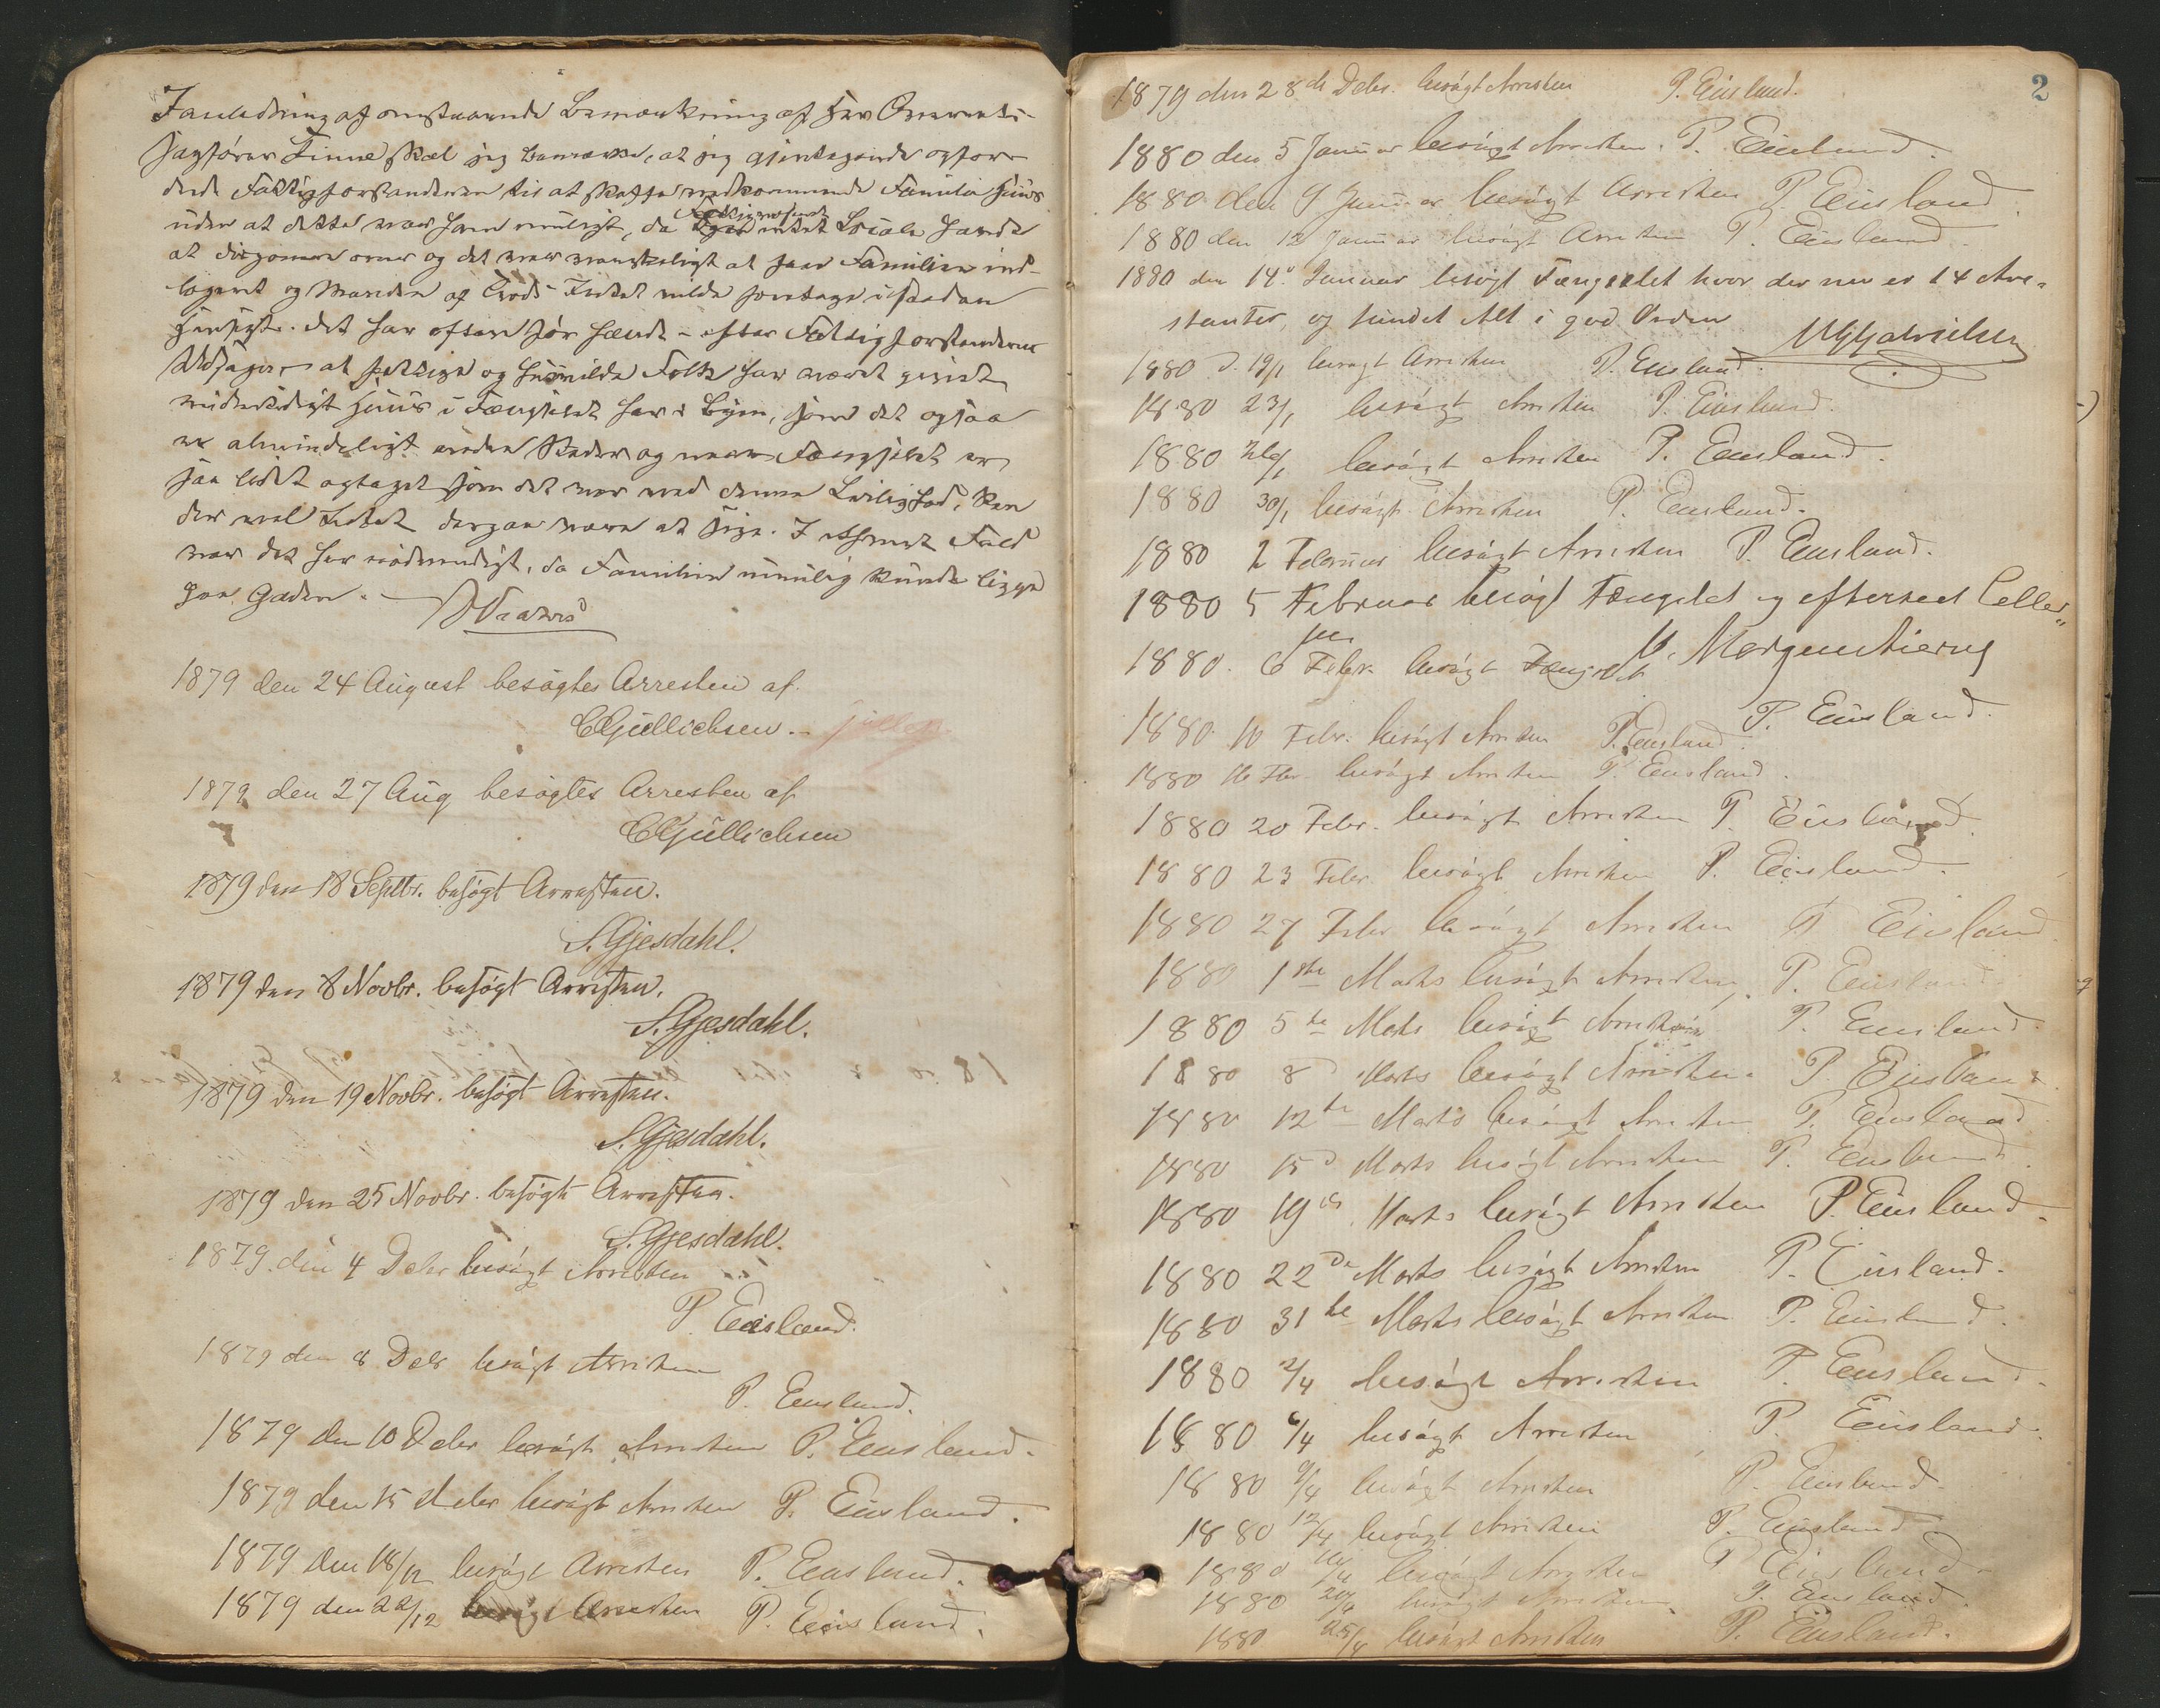 I anledning af omstaaende Bemærkning af Hrr Overrets-
sagfører Finne skal jeg bemærke, at jeg gjentagende opfor-
drede Fattigforstanderen til at skaffe vedkommende Familie Huus
uden at dette var ham muligt, da intet Locale havde
at disponere over og det var vanskeligt at faae Familien ind-
logeret og Manden af Gods Intet vilde foretage i saadan
Henseende. Det har oftere før hændt – efter Fattigforstanderens
Udsagn – at fattige og huusvilde Folk har været givet
midlertidigt Huus i Fængslet her i Byen, som det ogsaa
er almindeligt andre Steder og naar Fængslet er
saa lidet optaget som det var ved denne Leilighed, kan
der vel Intet derpaa være at sige. I ethvert Fald
var det her nødvendigt, da Familien umulig kunde ligge
paa Gaden.
1879 den 24 August besøgtes Arresten af
CGjullichsen.
1879 den 27 Aug besøgtes Arresten af
CGjullichsen
1879 den 18 Septbr. besøgt Arresten.
S. Gjesdahl.
1879 den 8 Novbr. besøgt Arresten.
S. Gjesdahl.
1879 den 19 Novbr. besøgt Arresten.
S. Gjesdahl.
1879 den 25 Novbr. besøgt Arresten.
S. Gjesdahl.
1879 den 4 Debr besøgt Arresten
P. Eiesland.
1879 den 8 Debr besøgt Arresten
P. Eiesland.
1879 den 10 Debr besøgt Arresten P. Eiesland.
1879 den 15 Debr besøgt Arresten P. Eiesland.
1879 den 18/12 besøgt Arresten P. Eiesland.
1879 den 22/12 besøgt Arresten P. Eiesland.
2
1879 den 28de Debr. besøgt Arresten P. Eiesland.
1880 den 5 Januar besøgt Arresten. P. Eiesland.
1880 den 9 Januar besøgt Arresten P. Eiesland.
1880 den 12 Januar besøgt Arresten P. Eiesland.
1880 den 14. Januar besøgt Fængselet hvor der nu er 14 Arre-
stanter, og fundet Alt i god Orden
1880 d. 19/1 besøgt Arresten P. Eiesland.
1880 23/1 besøgt Arresten P. Eiesland.
1880 26/1 besøgt Arresten P. Eiesland.
1880 30/1 besøgt Arresten P. Eiesland.
1880 2 Februar besøgt Arresten P. Eiesland.
1880 5 Februar besøgt Fængslet og efterseet Celler
Morgenstierne
1880. 6 Febr. besøgt Fængslet
P. Eiesland.
1880 10 Febr. besøgt Arresten P. Eiesland.
1880 16 Fbr. besøgt Arresten P. Eiesland.
1880 20 Febr. besøgt Arresten P. Eiesland.
1880 23 Febr. besøgt Arresten P. Eiesland.
1880 27 Febr besøgt Arresten P. Eiesland.
1880 1ste Marts besøgt Arresten, P. Eiesland.
1880 5te Marts besøgt Arresten P. Eiesland.
1880 8d Marts besøgt Arresten. P. Eiesland.
1880 12te Marts besøgt Arresten P. Eiesland.
1880 15d Marts besøgt Arresten P. Eiesland.
1880 19de Marts besøgt Arresten P. Eiesland.
1880 22de Marts besøgt Arresten P. Eiesland.
1880 31te Marts besøgt Arresten P. Eiesland.
1880 2/4 besøgt Arresten P. Eiesland.
1880 6/4 besøgt Arresten P. Eiesland.
1880 9/4 besøgt Arresten P. Eiesland.
1880 12/4 besøgt Arresten P. Eiesland.
1880 16/4 besøgt Arresten P. Eiesland.
1880 20/4 besøgt Arresten. P. Eiesland.
1880 25/4 besøgt Arresten P. Eiesland.